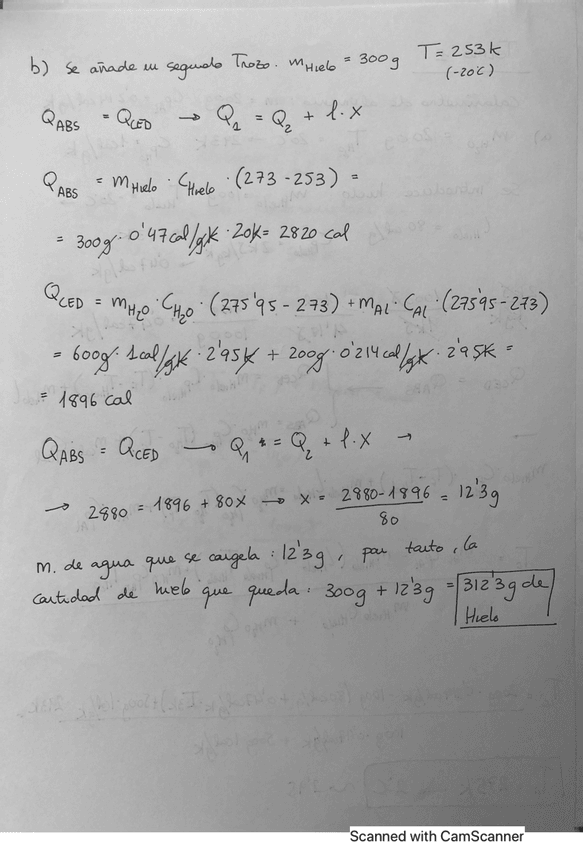 b) Se añade un segundo Trozo. mHielo = 300g T = 253k
(-20°C)
QABS = QCED → Q1 = Q2 + l·x
QABS = mHielo · CHielo · (273 - 253) =
= 300g · 0'47 cal/gK · 20K = 2820 cal
QCED = mH2O · CH2O · (275'95 - 273) + mAl · CAl · (275'95 - 273)
= 600g · 1cal/gK · 2'95K + 200g · 0'214 cal/gK · 2'95K =
= 1896 cal
QABS = QCED → Q1 = Q2 + l·x →
→ 2880 = 1896 + 80x → x = 2880-1896 / 80 = 12'3g
m. de agua que se congela : 12'3g, por tanto, la
cantidad de hielo que queda : 300g + 12'3g = 312'3g de
Hielo
Scanned with CamScanner